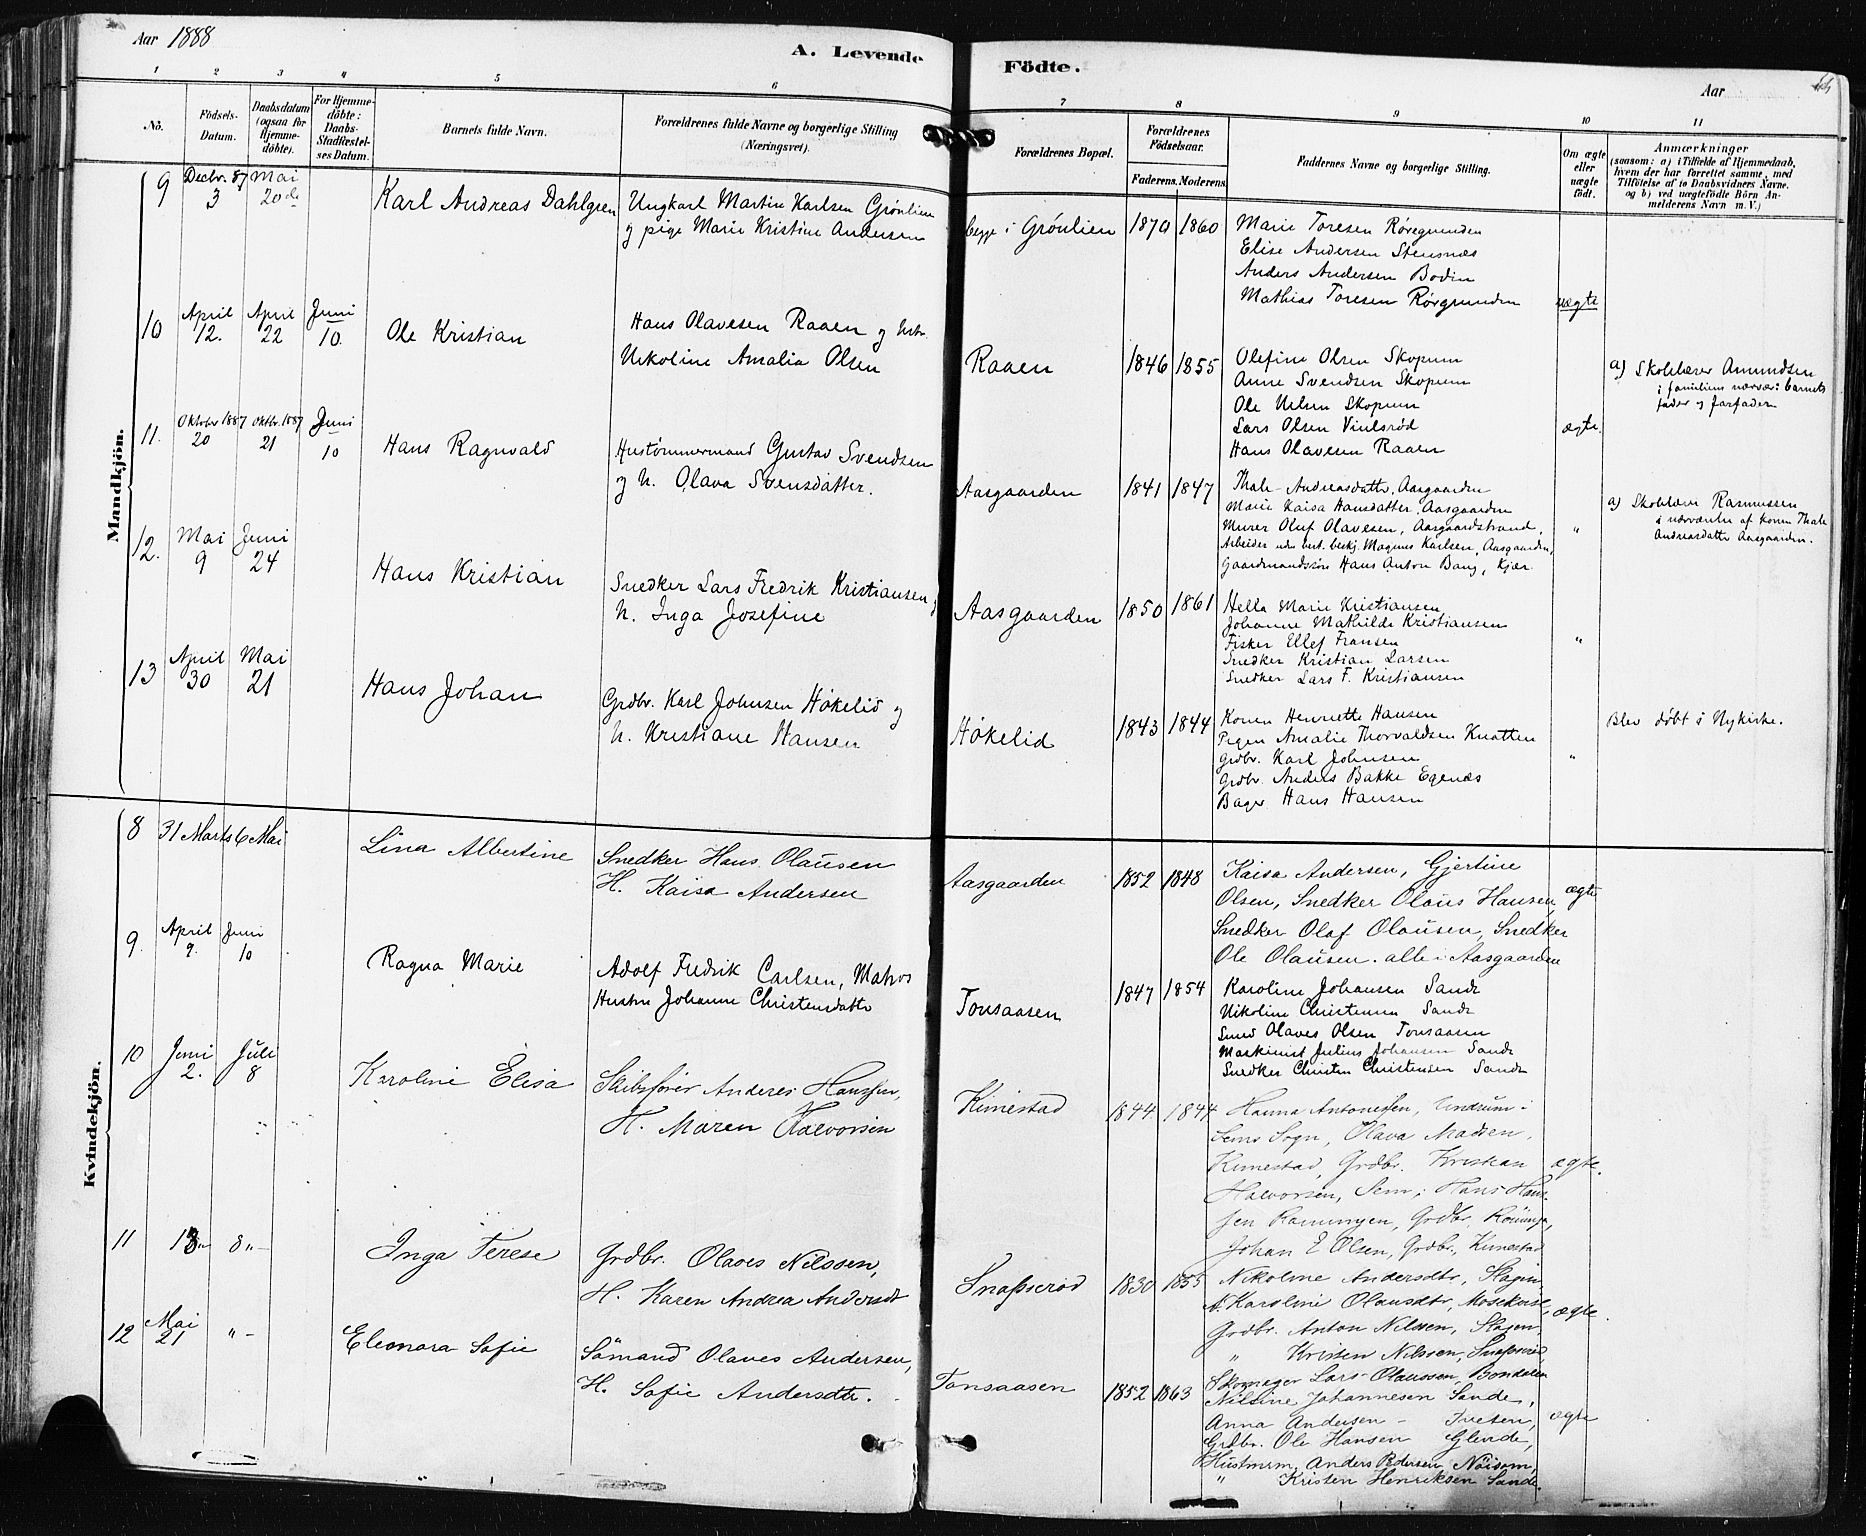 Aar 1888
A. Levende Födte.
Aar
1 2 3 4 5 6 7 8 9 10 11
No.
Födsels-Datum.
Daabsdatum (ogsaa for Hjemmedöbte).
For Hjemmedöbte: Daabs-Stadfæstelses Datum.
Barnets fulde Navn.
Forældrenes fulde Navne og borgerlige Stilling (Næringsvei).
Forældrenes Bopæl.
Forældrenes Födselsaar.
Faderens. Moderens.
Faddernes Navne og borgerlige Stilling.
Om ægte eller uægte födt.
Anmærkninger
(saasom: a) i Tilfælde af Hjemmedaab, hvem der har forrettet samme, med Tilföielse af to Daabsvidners Navne. og b) ved uægtefödte Börn Anmelderens Navn m. V.)
Mandkjön.
9 Decbr. 87 3 Mai 20de Karl Andreas Dahlgren
Ungkarl Martin Karlsen Grönlien
og pige Marie Kristine Andersen
begge i Grönlien 1870 1860
Marie Toresen Röregrunden
Elise Andersen Stensnæs
Anders Andersen Bodin
Mathias Toresen Rörgrunden uægte
10 April 12. April 22 Juni 10. Ole Kristian
Hans Olavesen Raaen og hstr.
Nikoline Amalia Olsen
Raaen 1846 1855
Olefine Olsen Skopum
Anne Svendsen Skopum
Ole Nilsen Skopum
Lars Olsen Vinlsröd ægte.
Hans Olavesen Raaen
a) Skolelærer Amundsen
i familiens nærvær: barnets
fader og farfader
11. Oktober 1887 20 Oktbr. 1887 21 Juni 10 Hans Ragnvald
Hustömmermand Gustav Svendsen
og h. Olava Svensdatter.
Aasgaarden 1841 1847
Thale Andreasdattr, Aasgaarden
Marie Kaisa Hansdatter, Aasgaarden
Murer Oluf Olavesen, Aasgaardstrand, "
Arbeider uden best. beskj. Magnus Karlsen, Aasgaarden,
Gaardmandssön Hans Anton Bang, Kjær.
a) Skolelærer Rasmussen
i nærværelse af konen Thale
Andreasdattr Aasgaarden.
12. Mai 9 Juni 24 Hans Kristian
Snedker Lars Fredrik Kristiansen og
h. Inga Josefine
Aasgaarden 1850 1861
Hella Marie Kristiansen
Johanne Mathilde Kristiansen
Fisker Ellef Fransen "
Snedker Kristian Larsen
Snedker Lars F. Kristiansen
13 April 30 Mai 21 Hans Johan
Grdbr. Karl Johnsen Hökelid og
h. Kristiane Hansen
Hökelid 1843 1844
Konen Henriette Hansen
Pigen Amalie Thorvaldsen Knatten
Grdbr. Karl Johnsen "
Grdbr. Anders Bakke Egenæs
Bager Hans Hansen
Blev döbt i Nykirke.
Kvindekjön.
8 31 Marts 6 Mai Lina Albertine
Snedker Hans Olausen
H. Kaisa Andersen
Aasgaarden 1852 1848
Kaisa Andersen, Gjertine
Olsen, Snedker Olaus Hansen, ægte
Snedker Olaf Olausen, Snedker
Ole Olausen. alle i Aasgaarden
9. April 9. Juni 10 Ragna Marie
Adolf Fredrik Carlsen, Matros
Hustru Johanne Christensdattr
Tonsaasen 1847 1854
Karoline Johansen Sande
Nikoline Christensen Sande
Smed Olaves Olsen Tonsaasen
Maskinist Julius Johansen Sande
Snedker Christen Christensen Sande
10 Juni 2. Juli 8 Karoline Elisa
Skibsförer Anders Hanssen,
H. Maren Halvorsen
Kimestad 1844 1844
Hanna Antonessen, Undrum i
Sems Sogn, Olava Madsen,
Kimestad, Grdbr. Kristian ægte.
Halvorsen, Sem, Hans Hans-
sen Ramungen, Grdbr.
Johan E Olsen, Grdbr., Kimestad
11 13"- 8"- Inga Terese
Grdbr. Olaves Nilssen,
H. Karen Andrea Andersdt
Snapseröd 1830 1855
Nikoline Andersdtr, Slagen,
Karoline Olausdtr, ægte.
Grdbr. Anton Nilssen, Slagen,
" Kristen Nilssen, Snapseröd,
Skomager Lars Olaussen, Bondalen
12 Mai 21 "- Eleonora Sofie
Sömand Olaves Andersen,
H. Sofie Andersdtr.
Tonsaasen 1852 1863
Nilsine Johannesen Sande,
Anna Andersen - Tveten, ægte
Grdbr. Ole Hansen Glende,
Hustmrm. Anders Pedersen Nöisom,
" Kristen Henriksen Sande.